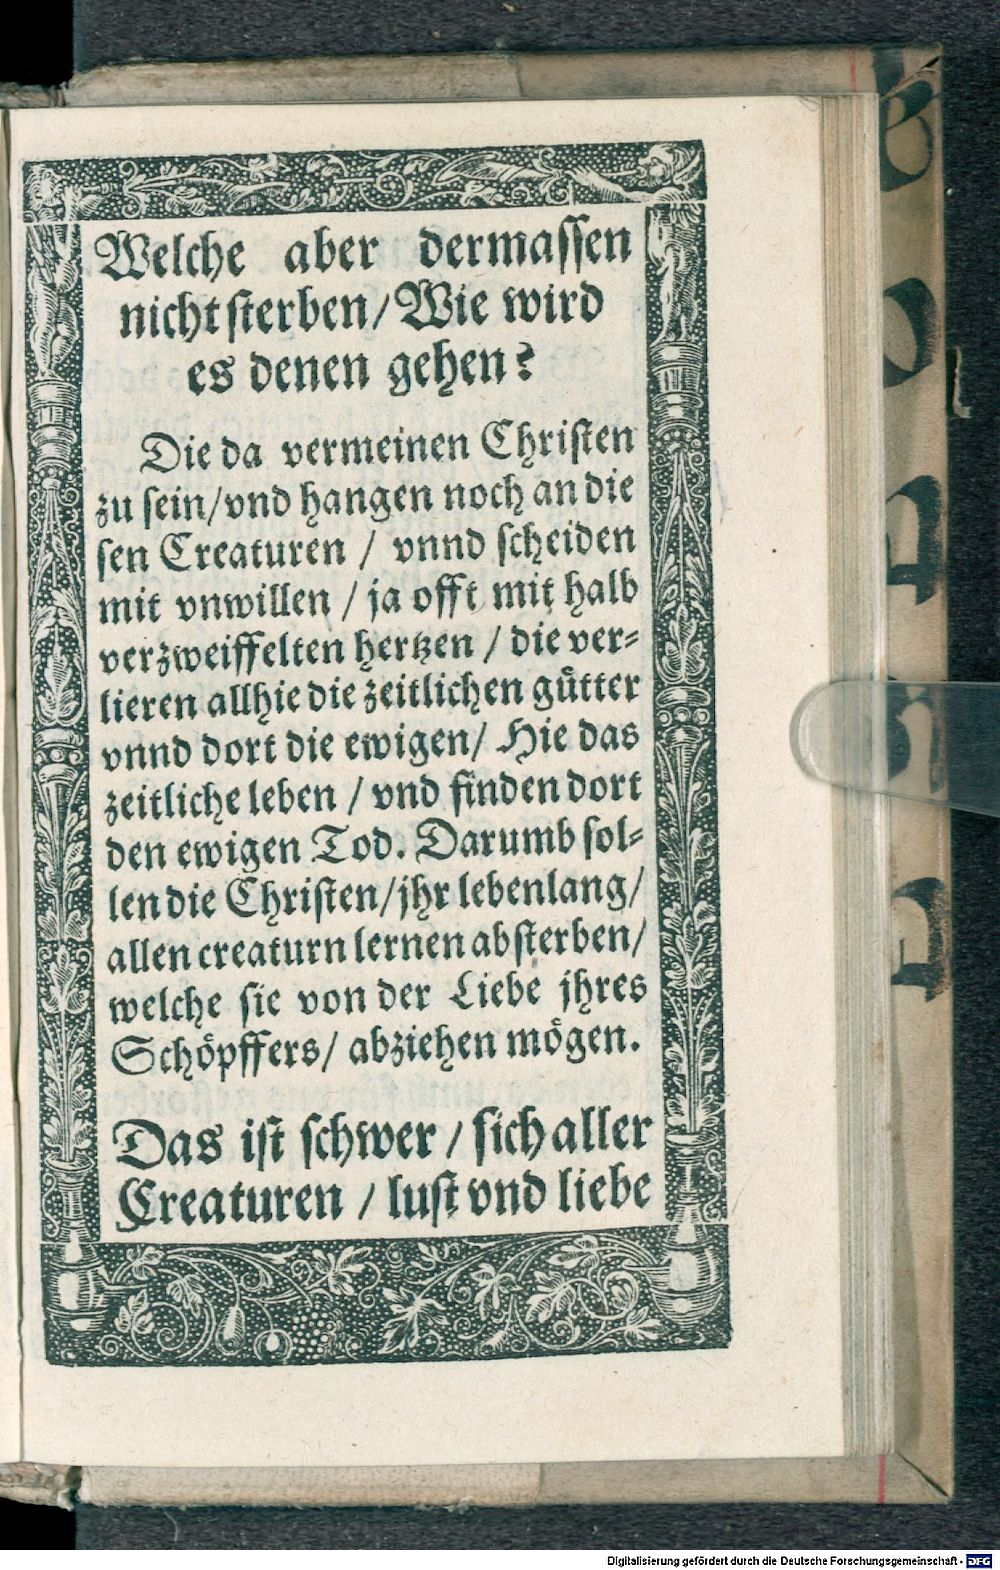 Welche aber dermassen
nicht sterben/Wie wird
es denen gehen?
Die da vermeinen Christen
zu sein/vnd hangen noch an die
sen Creaturen / vnnd scheiden
mit vnwillen / ja offt mit halb
verzweiffelten hertzen / die ver-
lieren allhie die zeitlichen gütter
vnnd dort die ewigen/ Hie das
zeitliche leben / vnd finden dort
den ewigen Tod. Darumb sol-
len die Christen/jhr lebenlang/
allen creaturn lernen absterben/
welche sie von der Liebe jhres
Schöpffers/ abziehen mögen.
Das ist schwer / sich aller
Creaturen / lust vnd liebe
Digitalisierung gefördert durch die Deutsche Forschungsgemeinschaft - DFG